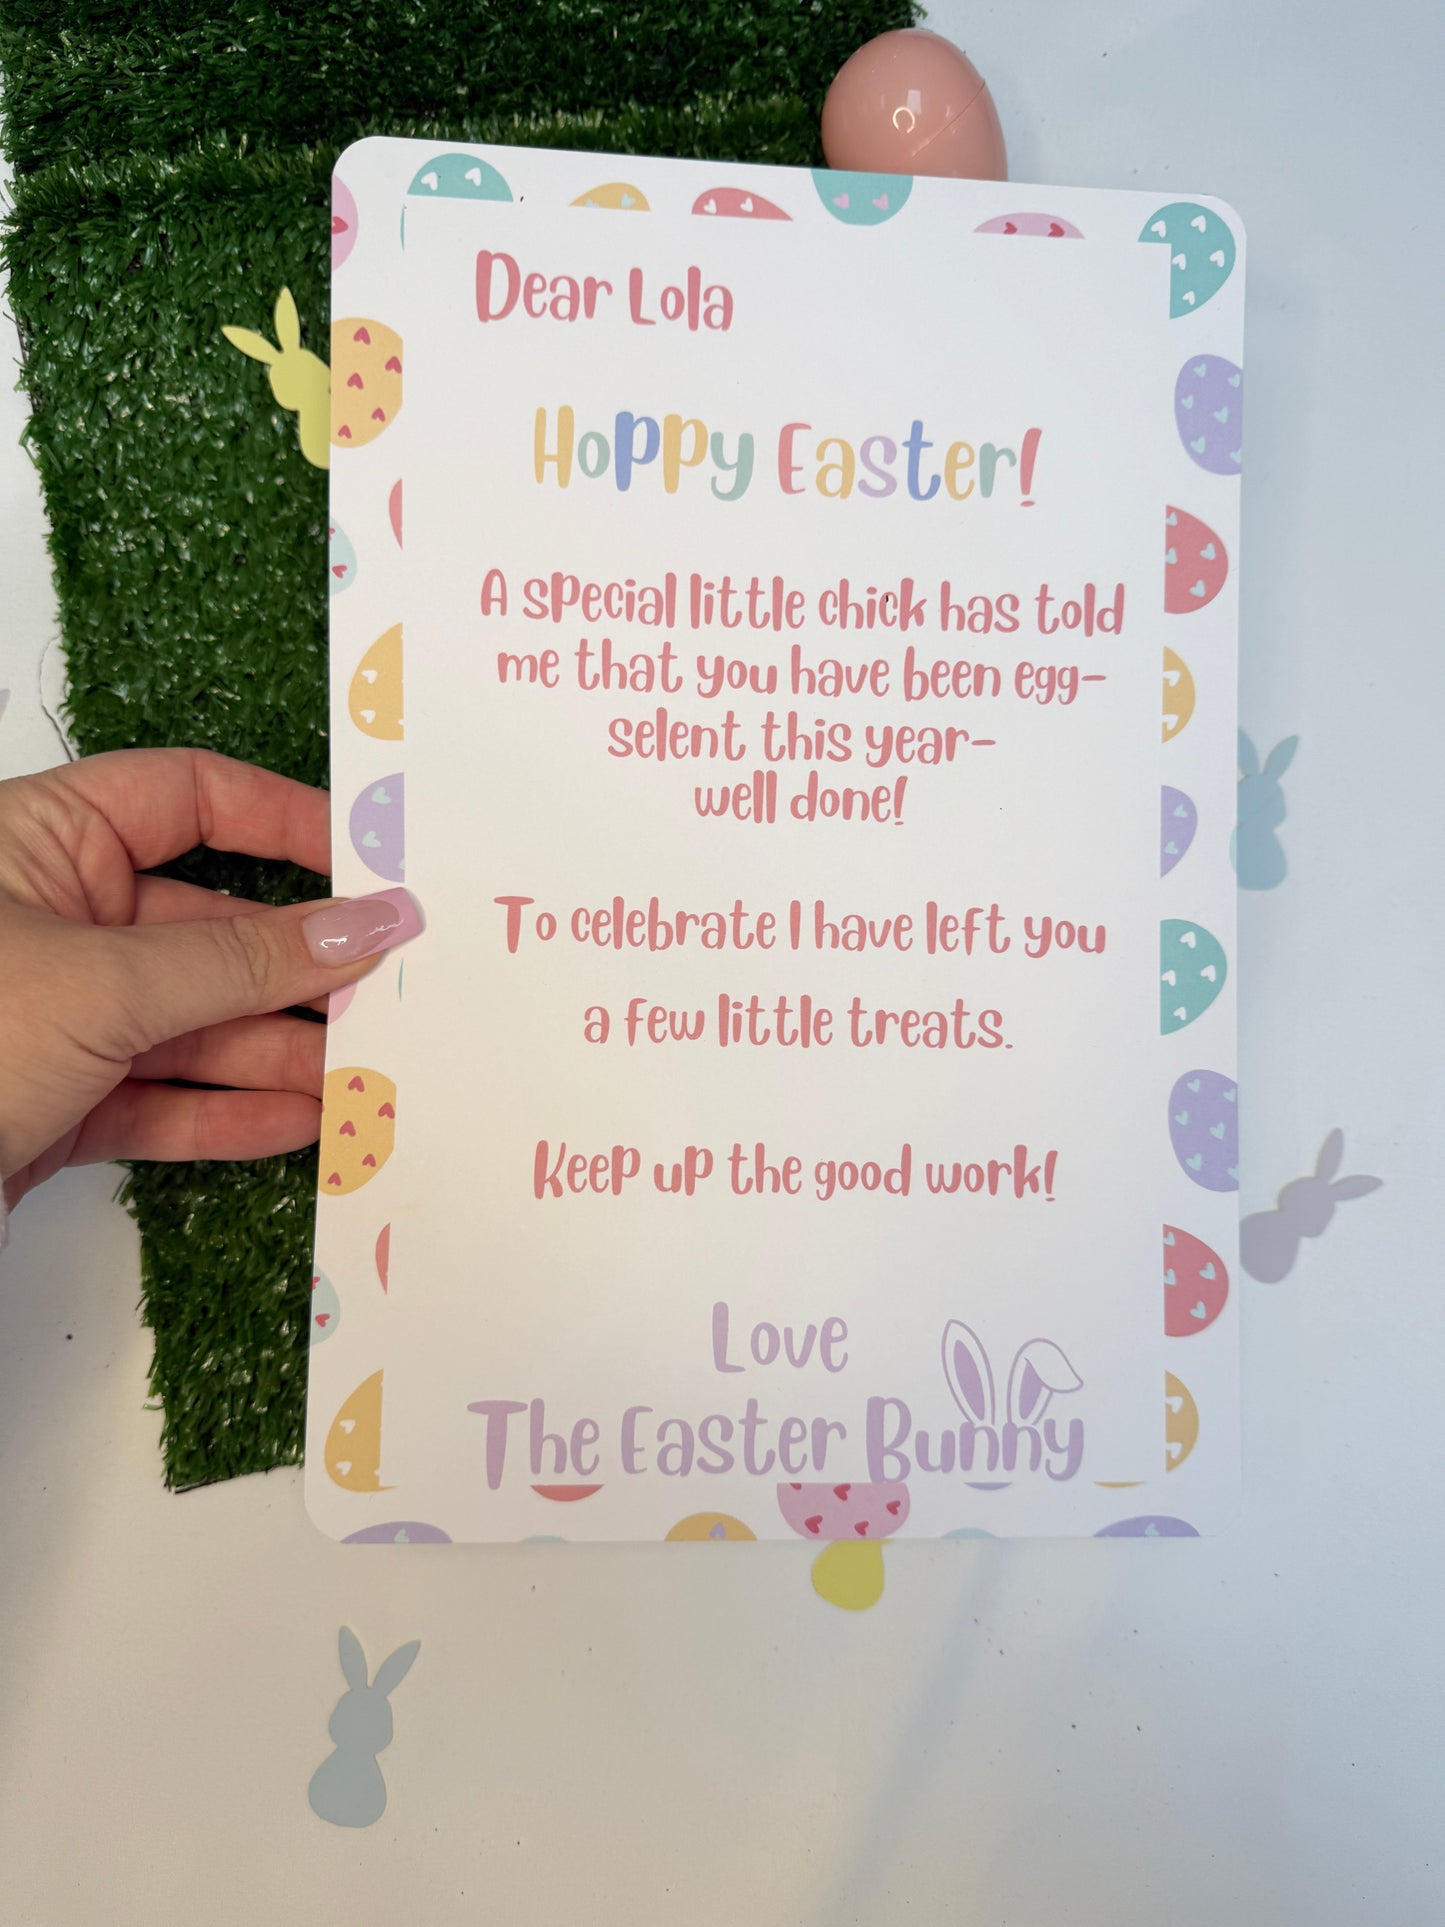 Dear Lola
Hoppy Easter!
A special little chick has told
me that you have been egg-
selent this year-
well done!
To celebrate I have left you
a few little treats.
Keep up the good work!
Love
The Easter Bunny